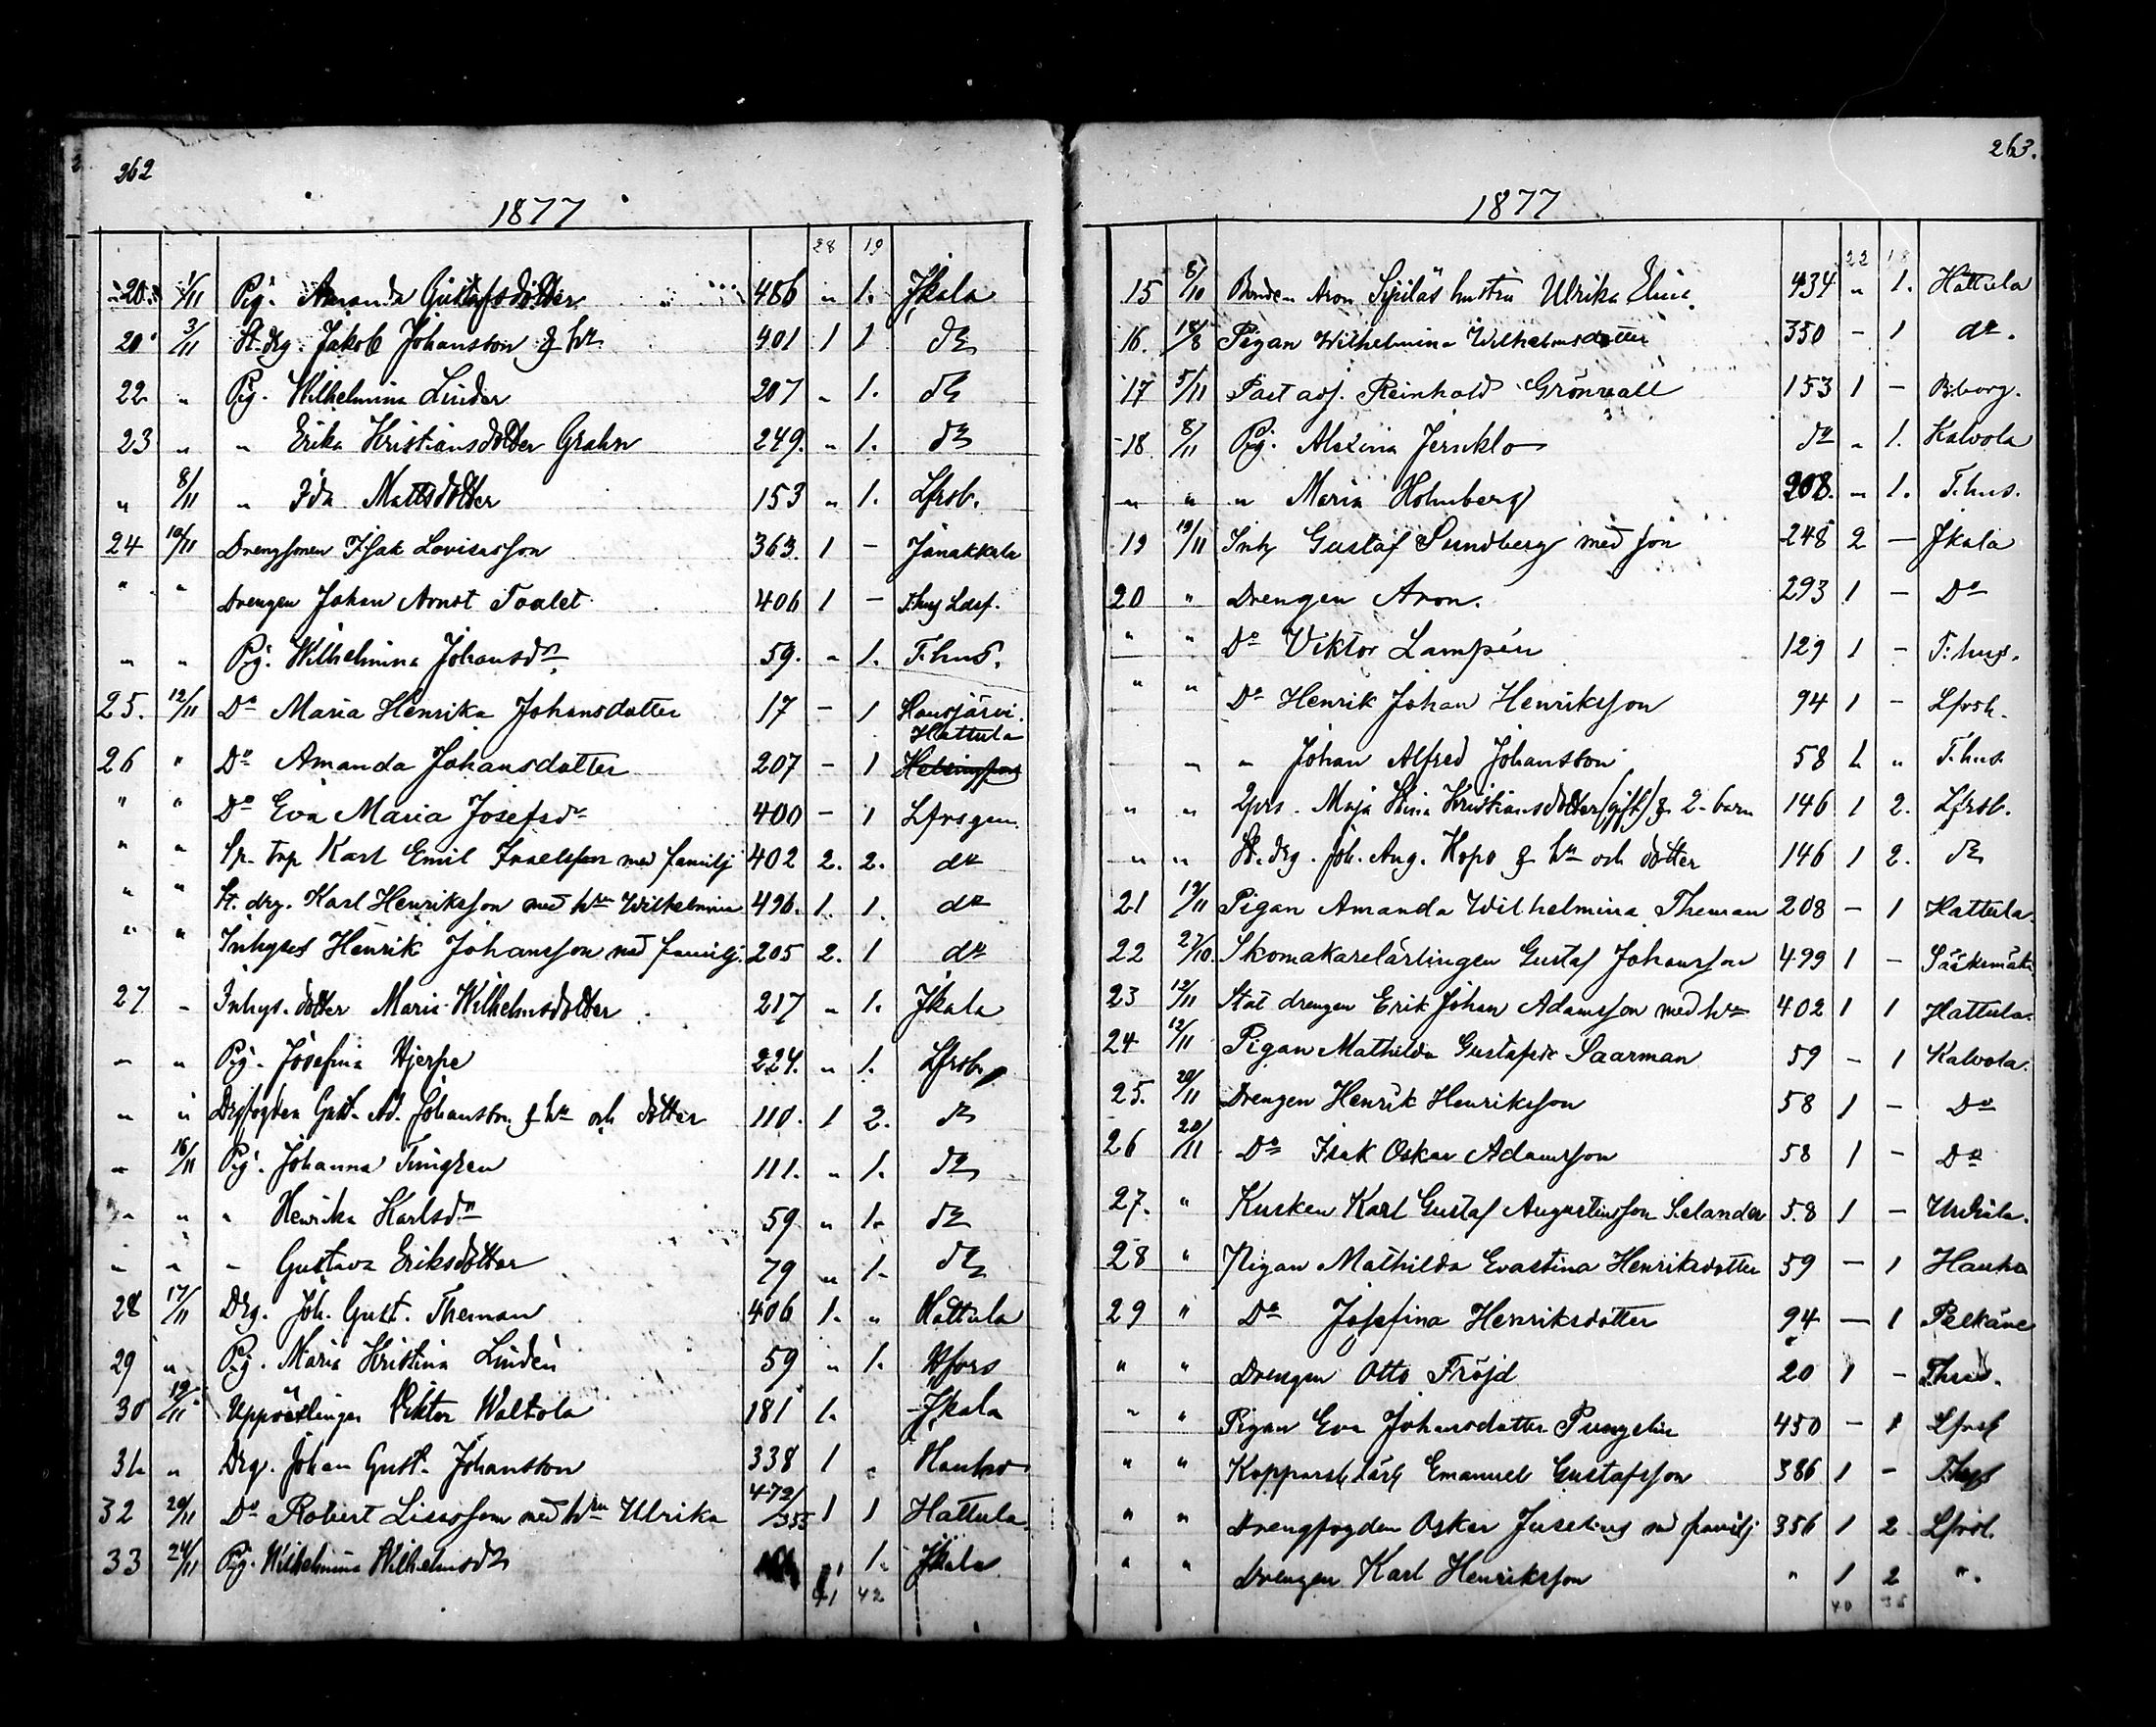 262
1877
28 19
20. 1/11 Pig. Amanda Gustafsdotter 486 " 1. Jkala
20 3/11 St. drg. Jakob Johansson & hu 401 1 1 do
22 " Pig. Wilhelmina Linder 207 " 1. do
23 " " Erika Kristiansdotter Grahn 249. " 1. do
" 8/11 " Ida Mattsdotter 153 " 1. Lfrsb.
24 10/11 Drengsonen Isak Lovisasson 363. 1 – Janakkala
" " Drengen Johan Arnst Toalet 406 1 – T.hus Ldsf.
" " Pig. Wilhelmina Johansdr 59. " 1. T.hus.
25. 12/11 Do Maria Henrika Johansdotter 17 – 1 Hausjärvi.
Hattula
26 " Do Amanda Johansdotter 207 – 1 Helsingfors
" " Do Eva Maria Josefsdr 400 – 1 Lfrsgen.
" " Sp. trp Karl Emil Israelsson med familj 402 2. 2. do
" " St. drg. Karl Henriksson med hun Wilhelmina 496. 1 1. do
" " Inhyses Henrik Johansson md familj. 205 2. 1 do
27 " Inhys. dotter Maria Wilhelmsdotter 217 " 1. Jkala
" " Pig. Josefina Hjerpe 224. " 1. Lfrsb.
" " Drgfogden Gust. Ad. Johansson & hu och dotter 110. 1 2. do
" 16/11 Pig. Johanna Tungren 111. " 1. do
" " " Henrika Karlsdr 59 " 1. do
" " " Gustava Eriksdotter 79 " 1. do
28 17/11 Drg. Joh. Gust. Theman 406 1. " Hattula
29 " Pig. Maria Kristina Lindén 59 " 1. Hfors
30 19/11 Uppsitlingen Viktor Waltola 181 1. – Jkala
31 " Drg. Johan Gust. Johansson 338 1 " Hauho
32 20/11 Do Robert Liisasson med hun Ulrika 472/355 1 1 Hattula
33 24/11 Pig. Wilhelmina Wilhelmsdr 1. Jkala
41 42
263.
1877
22 18
15 8/10 Bonden Aron Sipiläs hustru Ulrika Elisa. 434 " 1. Hattula
16. 18/8 Pigan Wilhelmina Wilhelmsdotter 350 – 1 do.
17 5/11 Past adj. Reinhold Grönvall 153 1 – B:borg.
18. 8/11 Pig. Alexina Jernklo do " 1. Kalvola
" " " Maria Holmberg 208. " 1. T.hus.
19 19/11 Inh Gustaf Sundberg med son 248 2 – Jkala
20 " Drengen Aron. 293 1 – Do
" " Do Viktor Lampén 129 1 – T:hus.
" " Do Henrik Johan Henriksson 94 1 – Lfrsb.
" " Johan Alfred Johansson 58 1. " T.hus.
" " Lprs. Maja Stina Kristiansdotter (gift) & 2 barn 146 1 2. Lfrsb.
" " St. drg. Joh. Aug. Hopo & hu och dotter 146 1 2. do
21 19/11 Pigan Amanda Wilhelmina Theman 208 – 1 Hattula.
22 27/10. Skomakarelärlingen Gustaf Johansson 499 1 – Sääksmäki
23 12/11 Stat drengen Erik Johan Adamsson med hu 402 1 1 Hattula.
24 12/11 Pigan Mathilda Gustafsdr Saarman 59 – 1 Kalvola.
25. 20/11 Drengen Henrik Henriksson 58 1 – Do
26 20/11 Do Isak Oskar Adamsson 58 1 – Do
27. " Kusken Karl Gustaf Augustinsson Selander 58 1 – Urdiala.
28 " Pigan Mathilda Evastina Henriksdotter 59 – 1 Hauho
29 " Do Josefina Henriksdotter 94 – 1 Pelkäne
" " Drengen Otto Fröjd 20 1 – T.hus.
" " Pigan Eva Johansdotter Pungelin 450 – 1 Lfrsb
" " Kopparsl.lärl Emanuel Gustafsson 386 1 – T.hus
" " Drengfogden Oskar Juselius md familj 356 1 2 Lfrsb.
" " Drengen Karl Henriksson " 1 2 ".
40 35